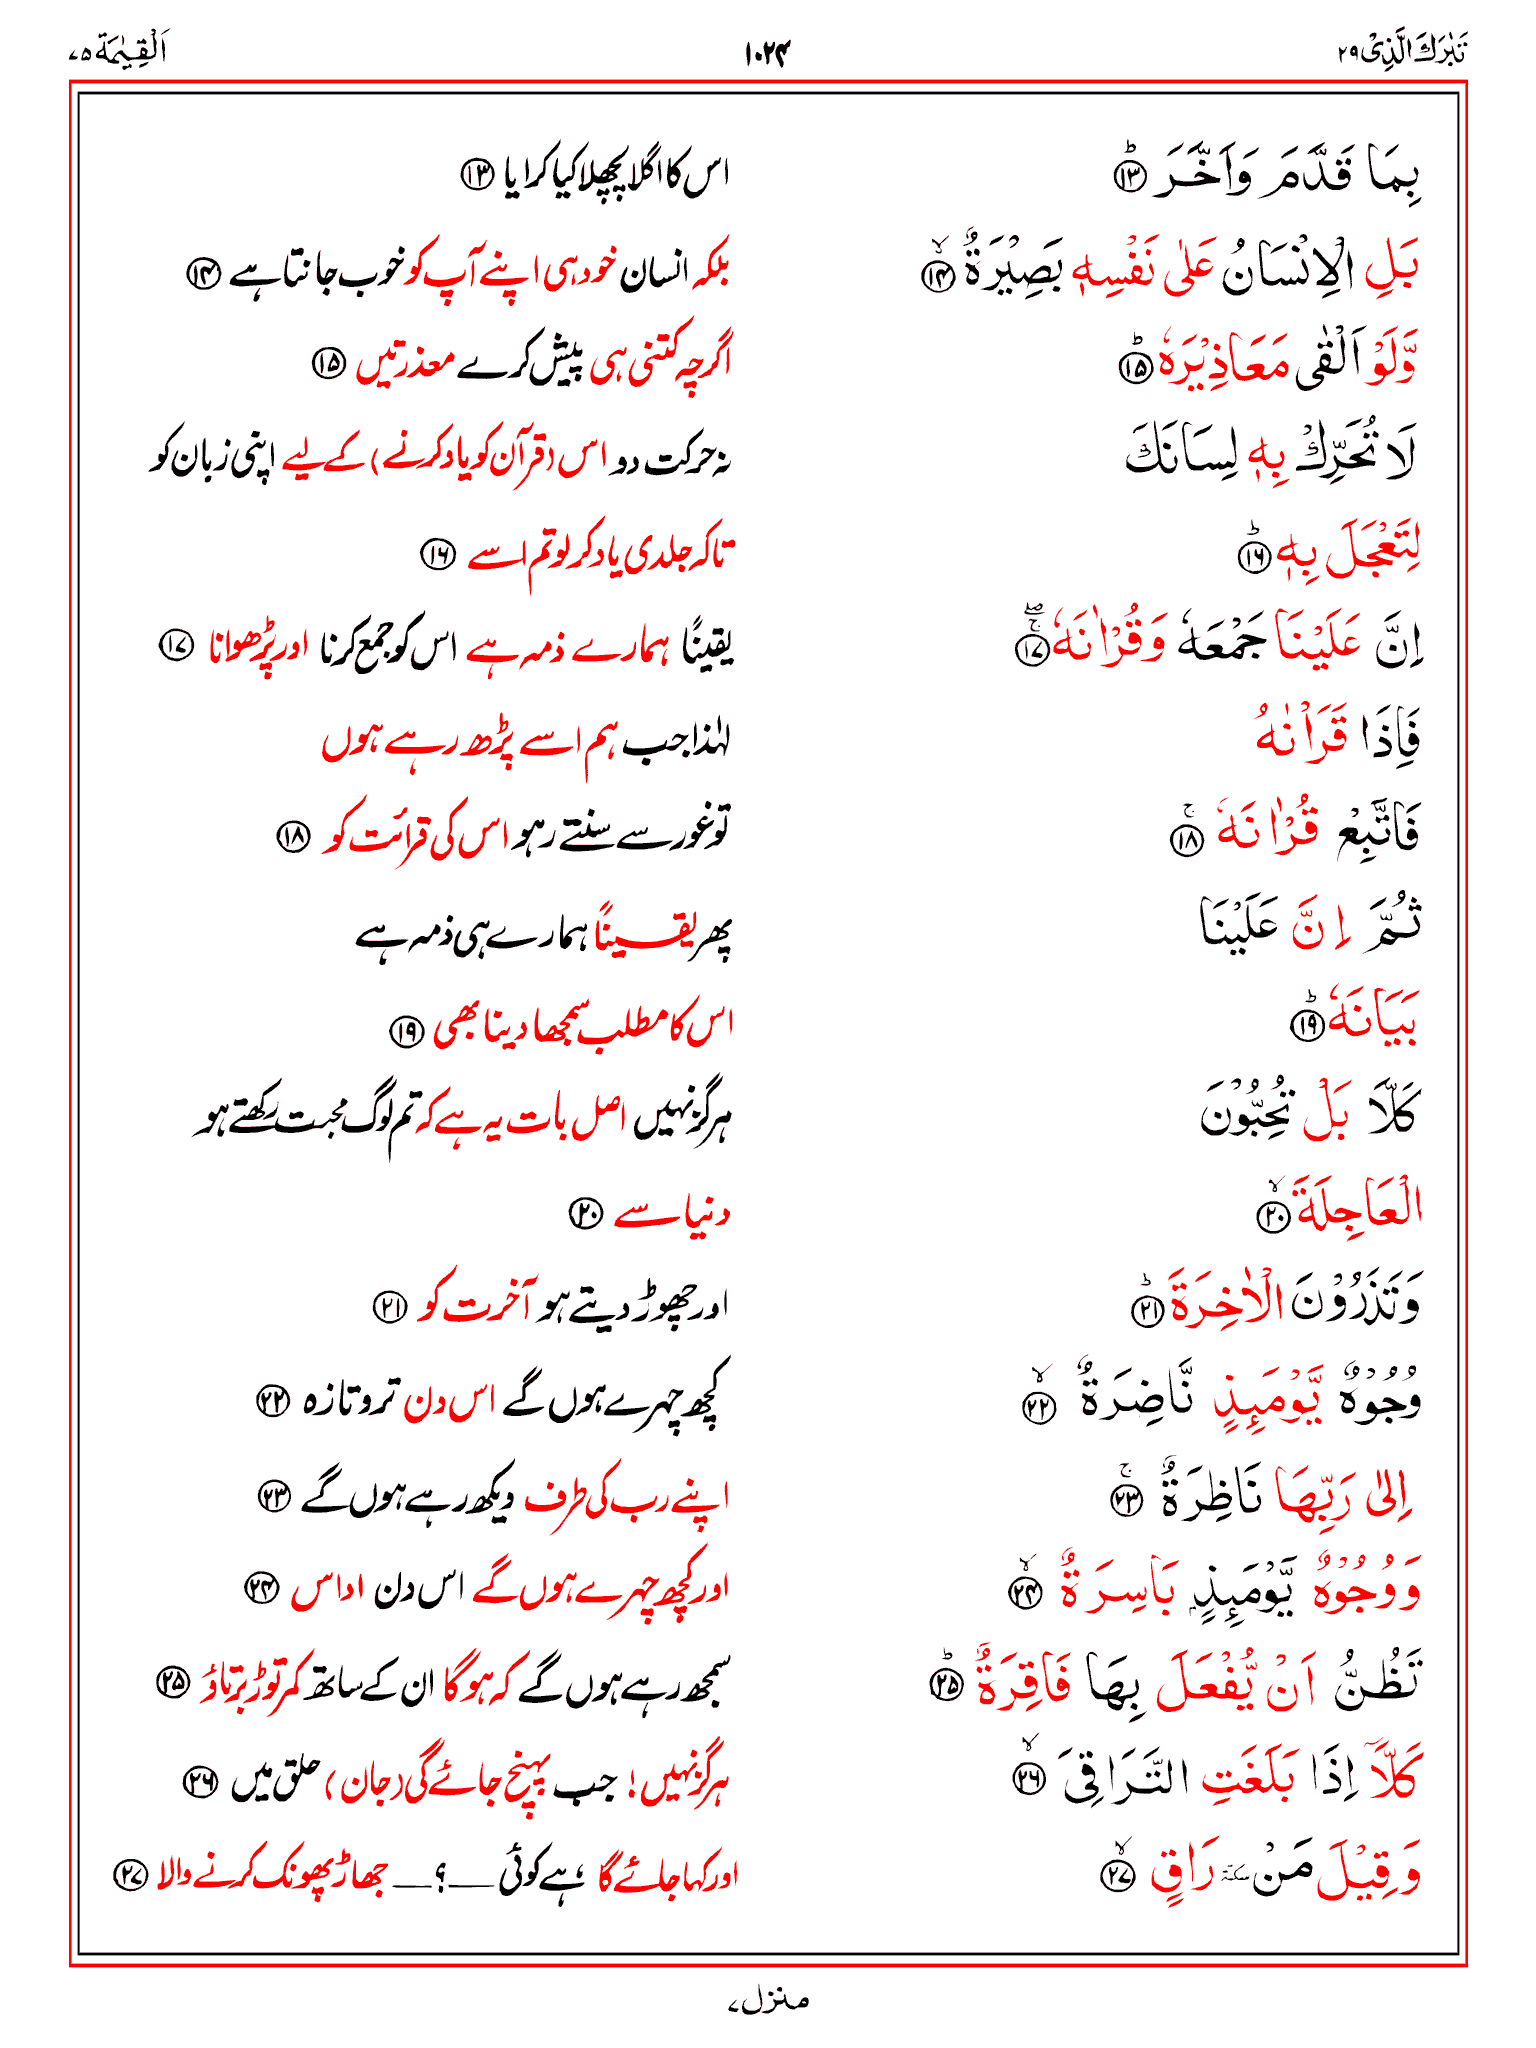 تَبٰرَكَ الَّذِیْ ۲۹ ۱۰۲۴ اَلْقِیٰمَة ۷۵
بِمَا قَدَّمَ وَاَخَّرَ ؕ ⑬ اس کا اگلا پچھلا کیا کرایا ⑬
بَلِ الْاِنْسَانُ عَلٰی نَفْسِهٖ بَصِیْرَةٌ ۙ ⑭ بلکہ انسان خود ہی اپنے آپ کو خوب جانتا ہے ⑭
وَّلَوْ اَلْقٰی مَعَاذِیْرَهٗ ؕ ⑮ اگرچہ کتنی ہی پیش کرے معذرتیں ⑮
لَا تُحَرِّكْ بِهٖ لِسَانَكَ نہ حرکت دو اس (قرآن کو یاد کرنے) کے لیے اپنی زبان کو
لِتَعْجَلَ بِهٖ ؕ ⑯ تاکہ جلدی یاد کر لو تم اسے ⑯
اِنَّ عَلَیْنَا جَمْعَهٗ وَقُرْاٰنَهٗ ۚۖ ⑰ یقینًا ہمارے ذمہ ہے اس کو جمع کرنا اور پڑھوانا ⑰
فَاِذَا قَرَاْنٰهُ لہٰذا جب ہم اسے پڑھ رہے ہوں
فَاتَّبِعْ قُرْاٰنَهٗ ۚ ⑱ تو غور سے سنتے رہو اس کی قرائت کو ⑱
ثُمَّ اِنَّ عَلَیْنَا پھر یقینًا ہمارے ہی ذمہ ہے
بَیَانَهٗ ؕ ⑲ اس کا مطلب سمجھا دینا بھی ⑲
كَلَّا بَلْ تُحِبُّوْنَ ہرگز نہیں اصل بات یہ ہے کہ تم لوگ محبت رکھتے ہو
الْعَاجِلَةَ ۙ ⑳ دنیا سے ⑳
وَتَذَرُوْنَ الْاٰخِرَةَ ؕ ㉑ اور چھوڑ دیتے ہو آخرت کو ㉑
وُجُوْهٌ یَّوْمَئِذٍ نَّاضِرَةٌ ۙ ㉒ کچھ چہرے ہوں گے اس دن تر و تازہ ㉒
اِلٰی رَبِّهَا نَاظِرَةٌ ۚ ㉓ اپنے رب کی طرف دیکھ رہے ہوں گے ㉓
وَوُجُوْهٌ یَّوْمَئِذٍۭ بَاسِرَةٌ ۙ ㉔ اور کچھ چہرے ہوں گے اس دن اداس ㉔
تَظُنُّ اَنْ یُّفْعَلَ بِهَا فَاقِرَةٌ ؕ ㉕ سمجھ رہے ہوں گے کہ ہوگا ان کے ساتھ کمر توڑ برتاؤ ㉕
كَلَّاۤ اِذَا بَلَغَتِ التَّرَاقِیَ ۙ ㉖ ہرگز نہیں! جب پہنچ جائے گی (جان) حلق میں ㉖
وَقِیْلَ مَنْ سكتة رَاقٍ ۙ ㉗ اور کہا جائے گا، ہے کوئی —؟— جھاڑ پھونک کرنے والا ㉗
منزل ۷